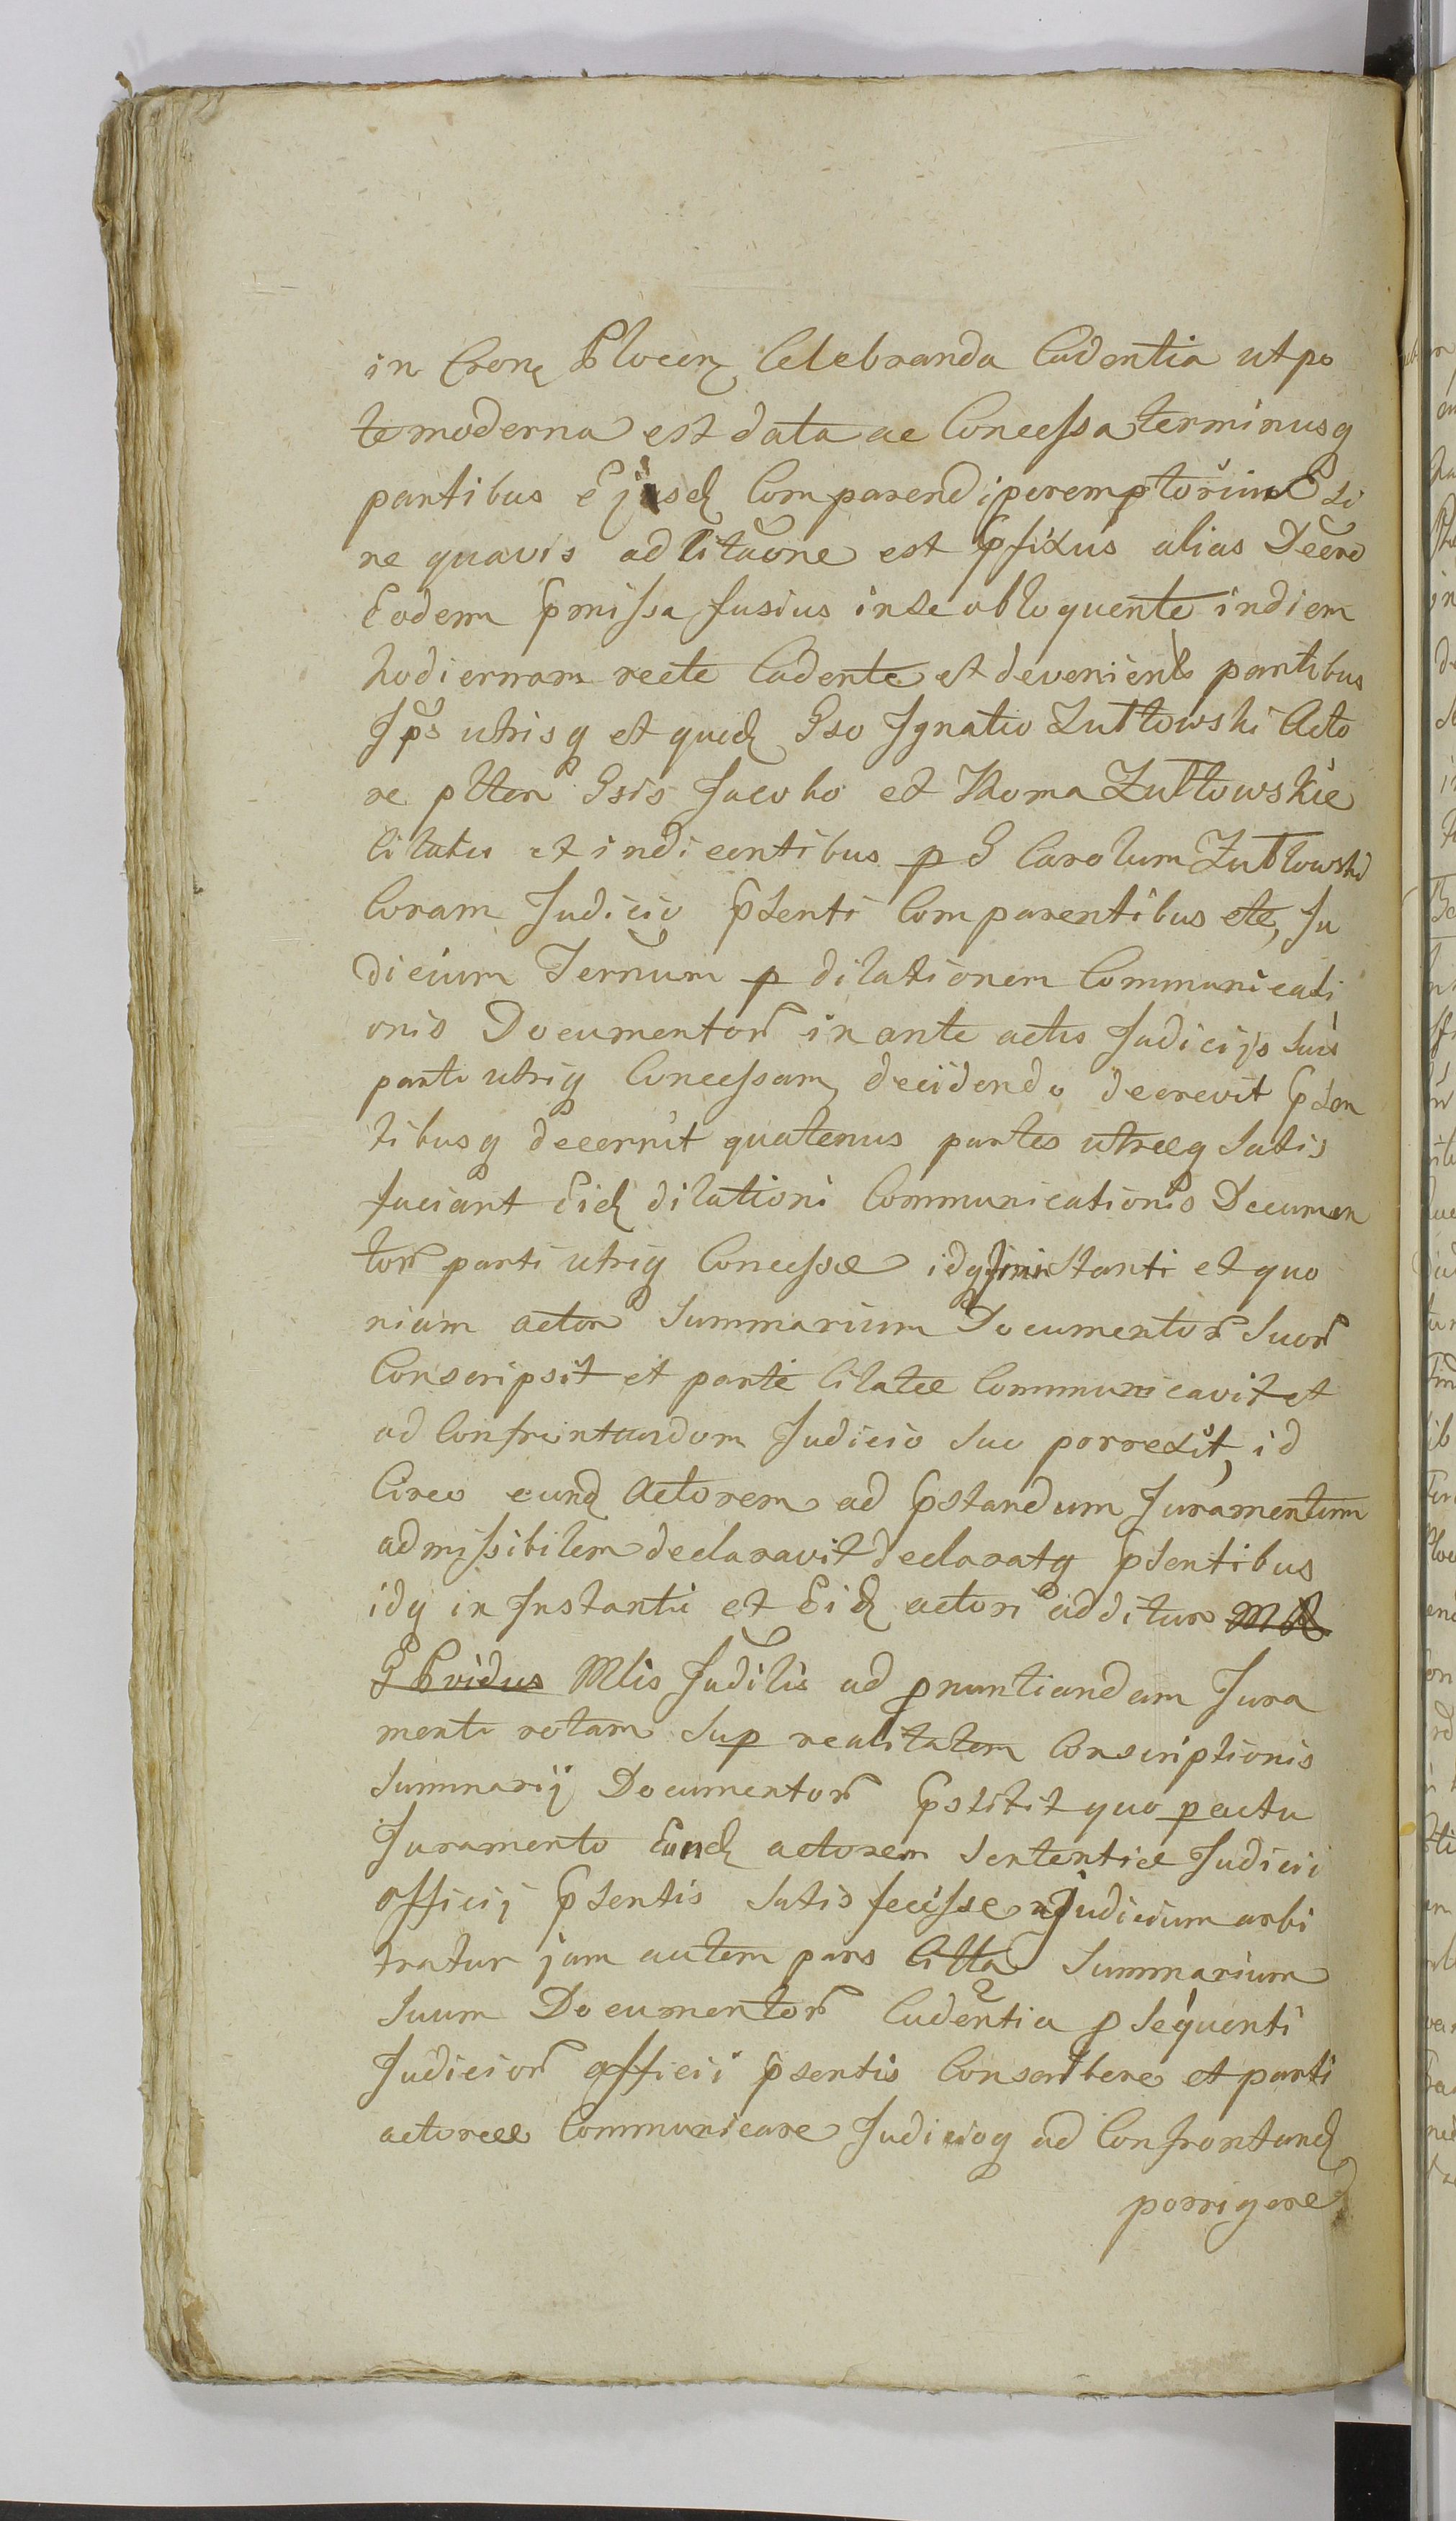 in Crone Plocen Celebranda Cadentia utpo
te moderna est data ac Concessa terminusq
partibus Ejusd Comparendi peremptorius Si
ne quavis ad Citaone est Pfixus alias Decro
Eodem Pmissa fusius in se obloquente in diem
hodiernam recte Cadente et deveniente partibus
Ips utrisq et quid Gso Ignatio Zułtowski Acto
re ptten Gsis Jacobo et Thoma Zułtowskie
Citatis et indicentibus p G Carolum Zułtowski
Coram Judicio Psenti Comparentibus etc, Ju
dicium Ternum p dilationem Communicati
onis Documentor in ante actis Judicijs Suis
parti utriq Concessam, decidendo decrevit Psen
tibusq decernit quatenus partes utraeq Satis
faciant Eid dilationi Communicationis Documen
tor parti utriq Concessae idq instanti et quo
niam actor Summarium Documentor Suor
Conscripsit et parte Citatae Communicavit et
ad Confrontandum Judicio Suo porrexit, id
Circo eund Actorem ad Pstandum Juramentum
admissibilem declaravit declaratq Psentibus
idq in Instanti et Eid actori additur
G Pvidus Mlis Judilis ad pnuntiandam Jura
menti rotam Sup realitatem Conscriptionis
Summarij Documentor Pstitit quo peractu
Juramento Eund actorem Sententiae Judicii
officij Psentis Satis fecisse Judicium arbi
tratur jam autem pars Citta Summarium
Suum Documentor Cadentia p Sequenti
Judicior officii Psentis Conscribere et parti
actoreae Communicare Judicioq ad Confrontand
porrigere